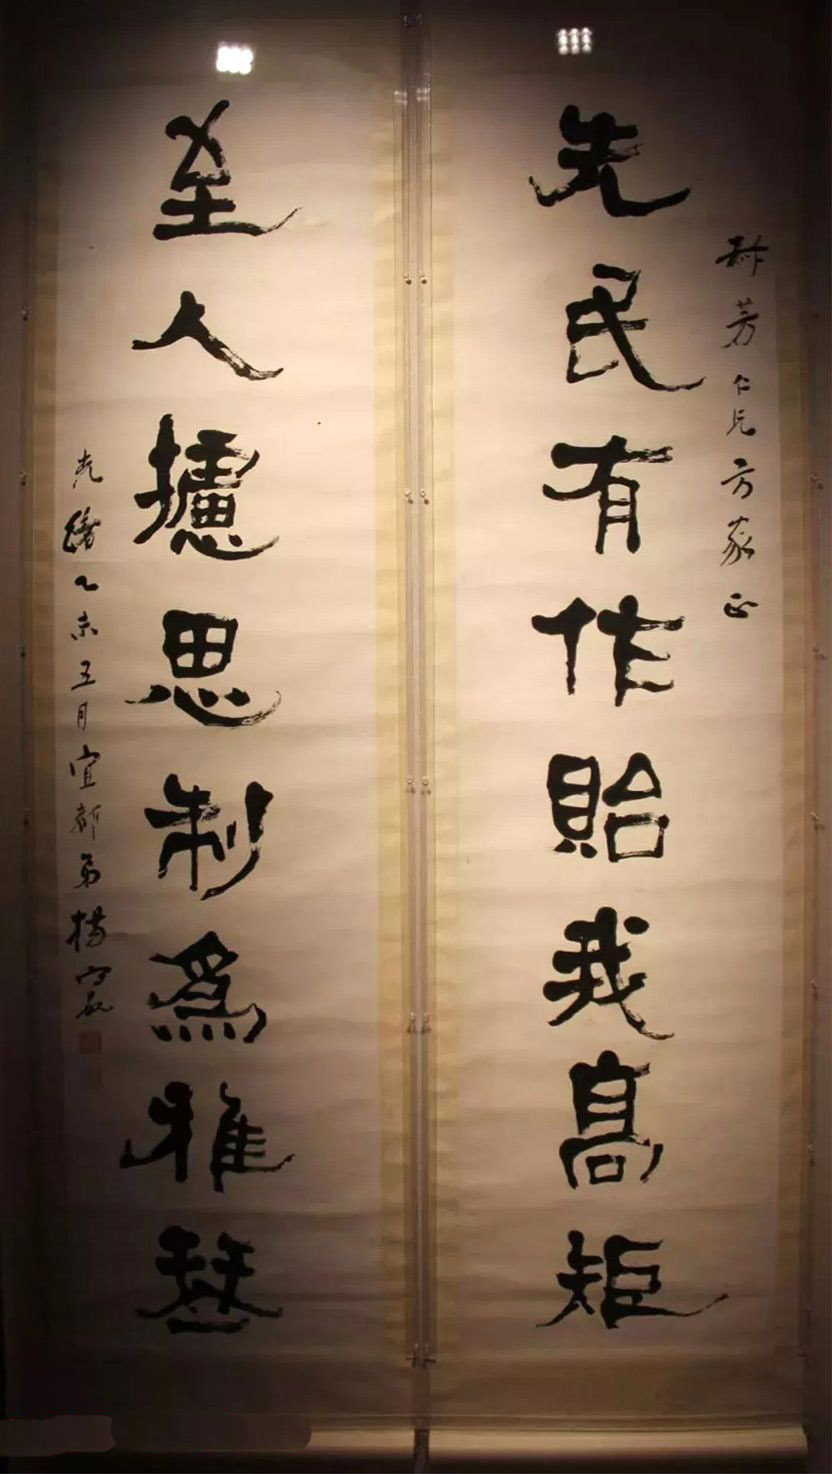 芳仁兄方家正
先民有作貽我髙矩
至人攄思制爲雅琴
光緒乙未五月宜都弟楊守敬